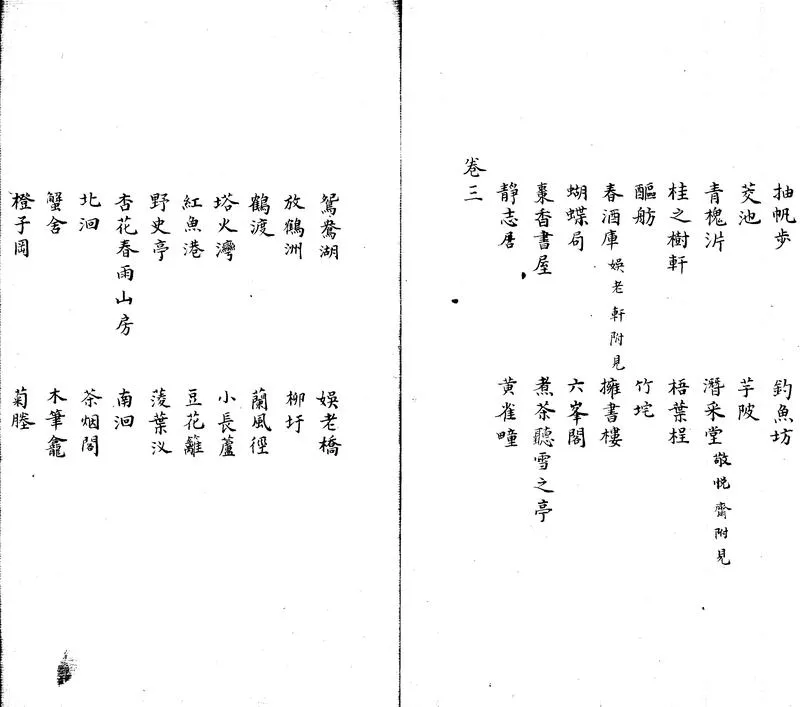 抽帆步　釣魚坊
芰池　芋陂
青槐沜　潛采堂 敬悅齋附見
桂之樹軒　梧葉桯
醧舫　竹垞
春酒庫 娛老軒附見　擁書樓
蝴蝶局　六峯閣
棗香書屋　煮茶聽雪之亭
靜志居　黃雀疃
卷三
鴛鴦湖　娛老橋
放鶴洲　柳圩
鶴渡　蘭風徑
塔火灣　小長蘆
紅魚港　豆花籬
野史亭　蔆葉汊
杏花春雨山房　南洄
北洄　茶烟閣
蟹舍　木筆龕
橙子岡　菊塍